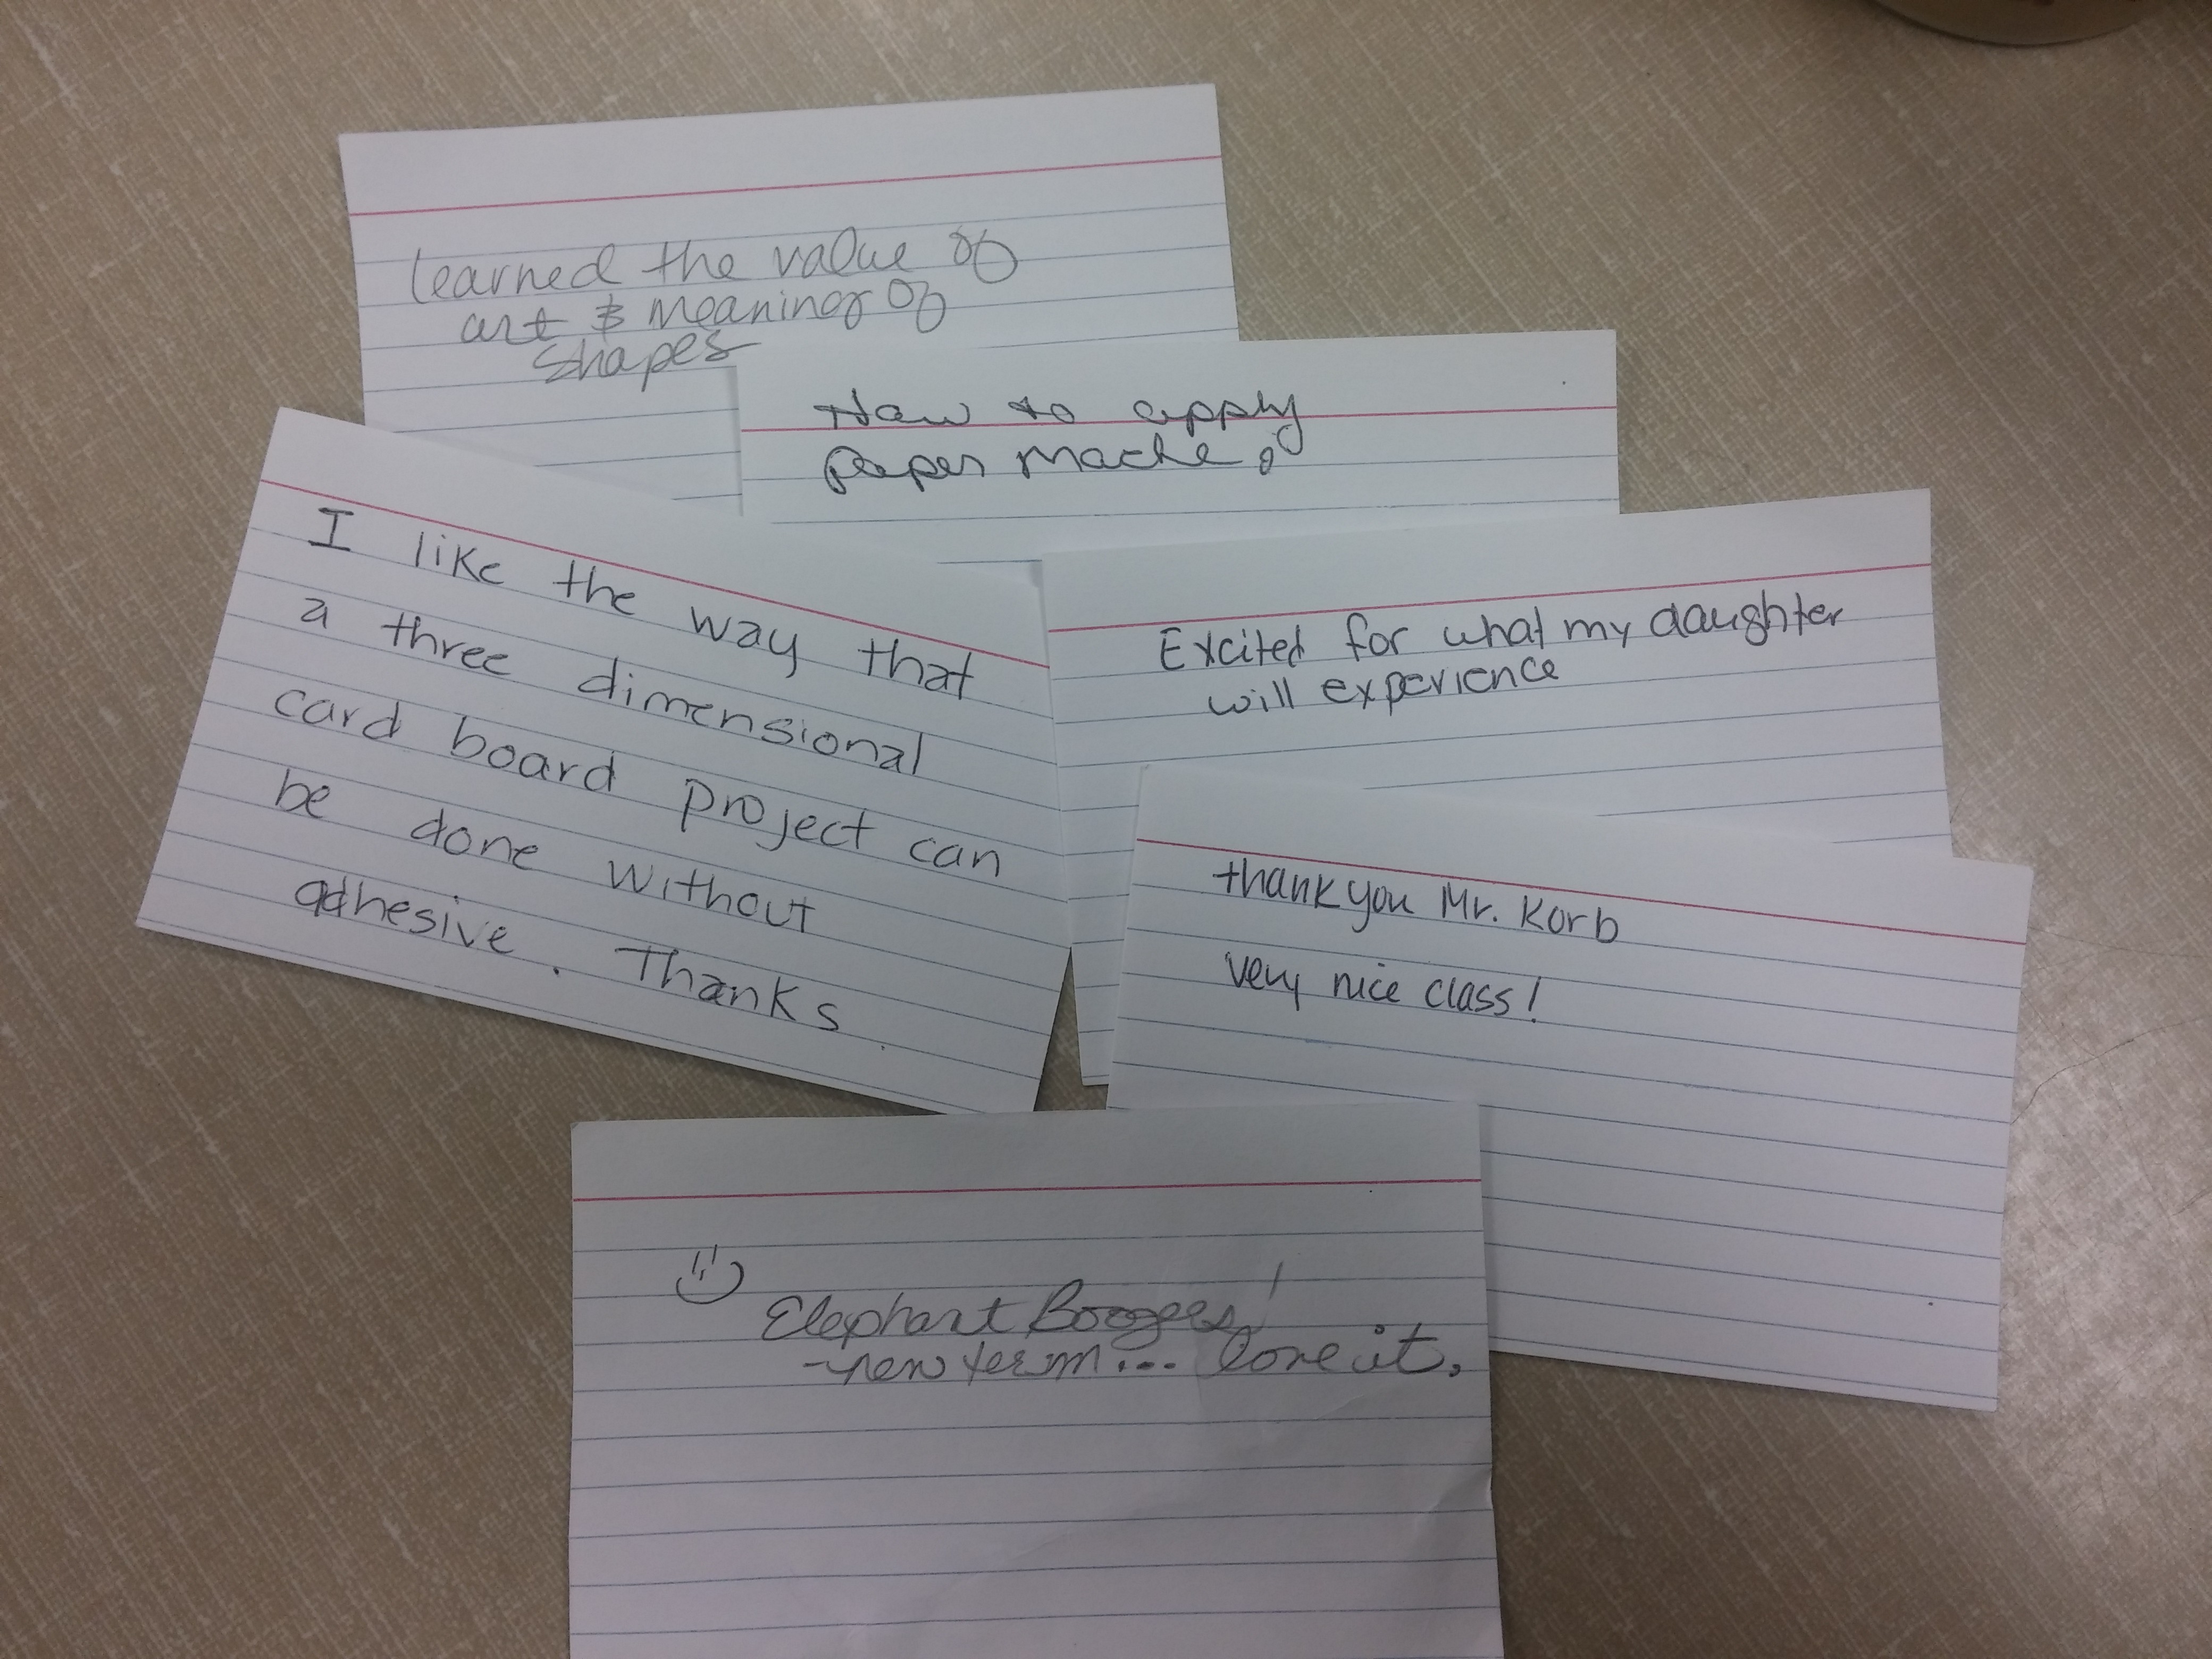 learned the value of
art & meaning of
shapes
How to apply
paper mache?
I like the way that
a three dimensional
card board project can
be done without
adhesive. Thanks
Excited for what my daughter
will experience
thank you Mr. Korb
very nice class!
Elephant Boogers!
-new term... love it.